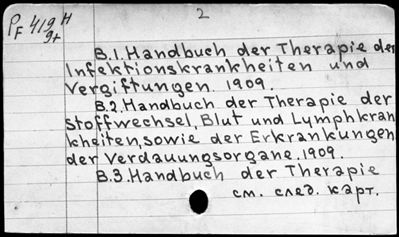 2
Pf 419 H
9+
B.1. Handbuch der Therapie der
Infektionskrankheiten und
Vergiftungen. 1909.
B.2. Handbuch der Therapie der
Stoffwechsel, Blut und Lymphkran
kheiten, sowie der Erkrankungen
der Verdauungsorgane. 1909.
B.3. Handbuch der Therapie
см. след. карт.